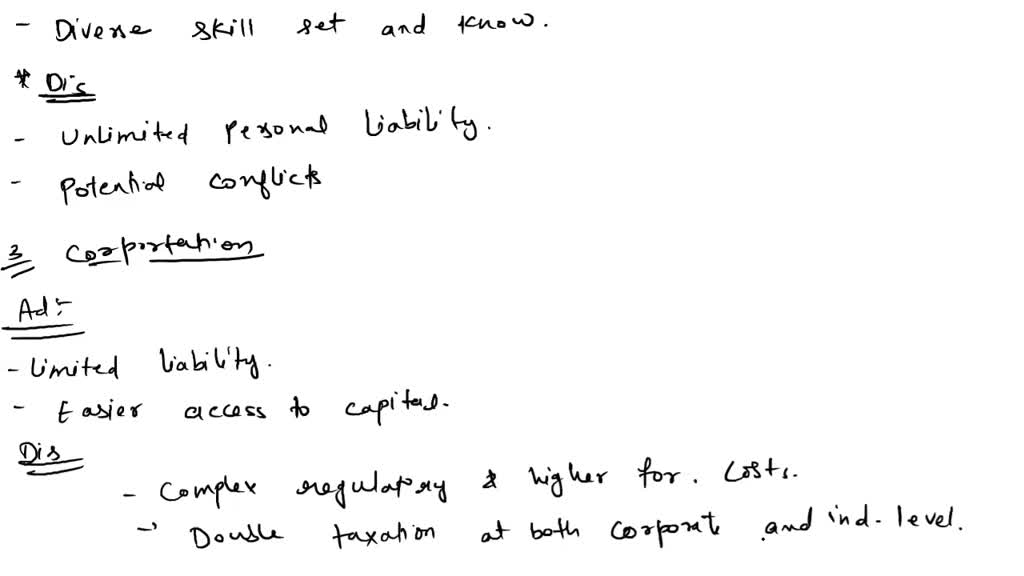 - Diverse skill set and know.
* Dis
- Unlimited Personal liability.
- Potential conflicts
3 Corportation
Ad :-
- Limited liability.
- Easier access to capital.
Dis
- Complex regulatory & higher for. Costs.
- Double taxation at both corporate and ind. level.